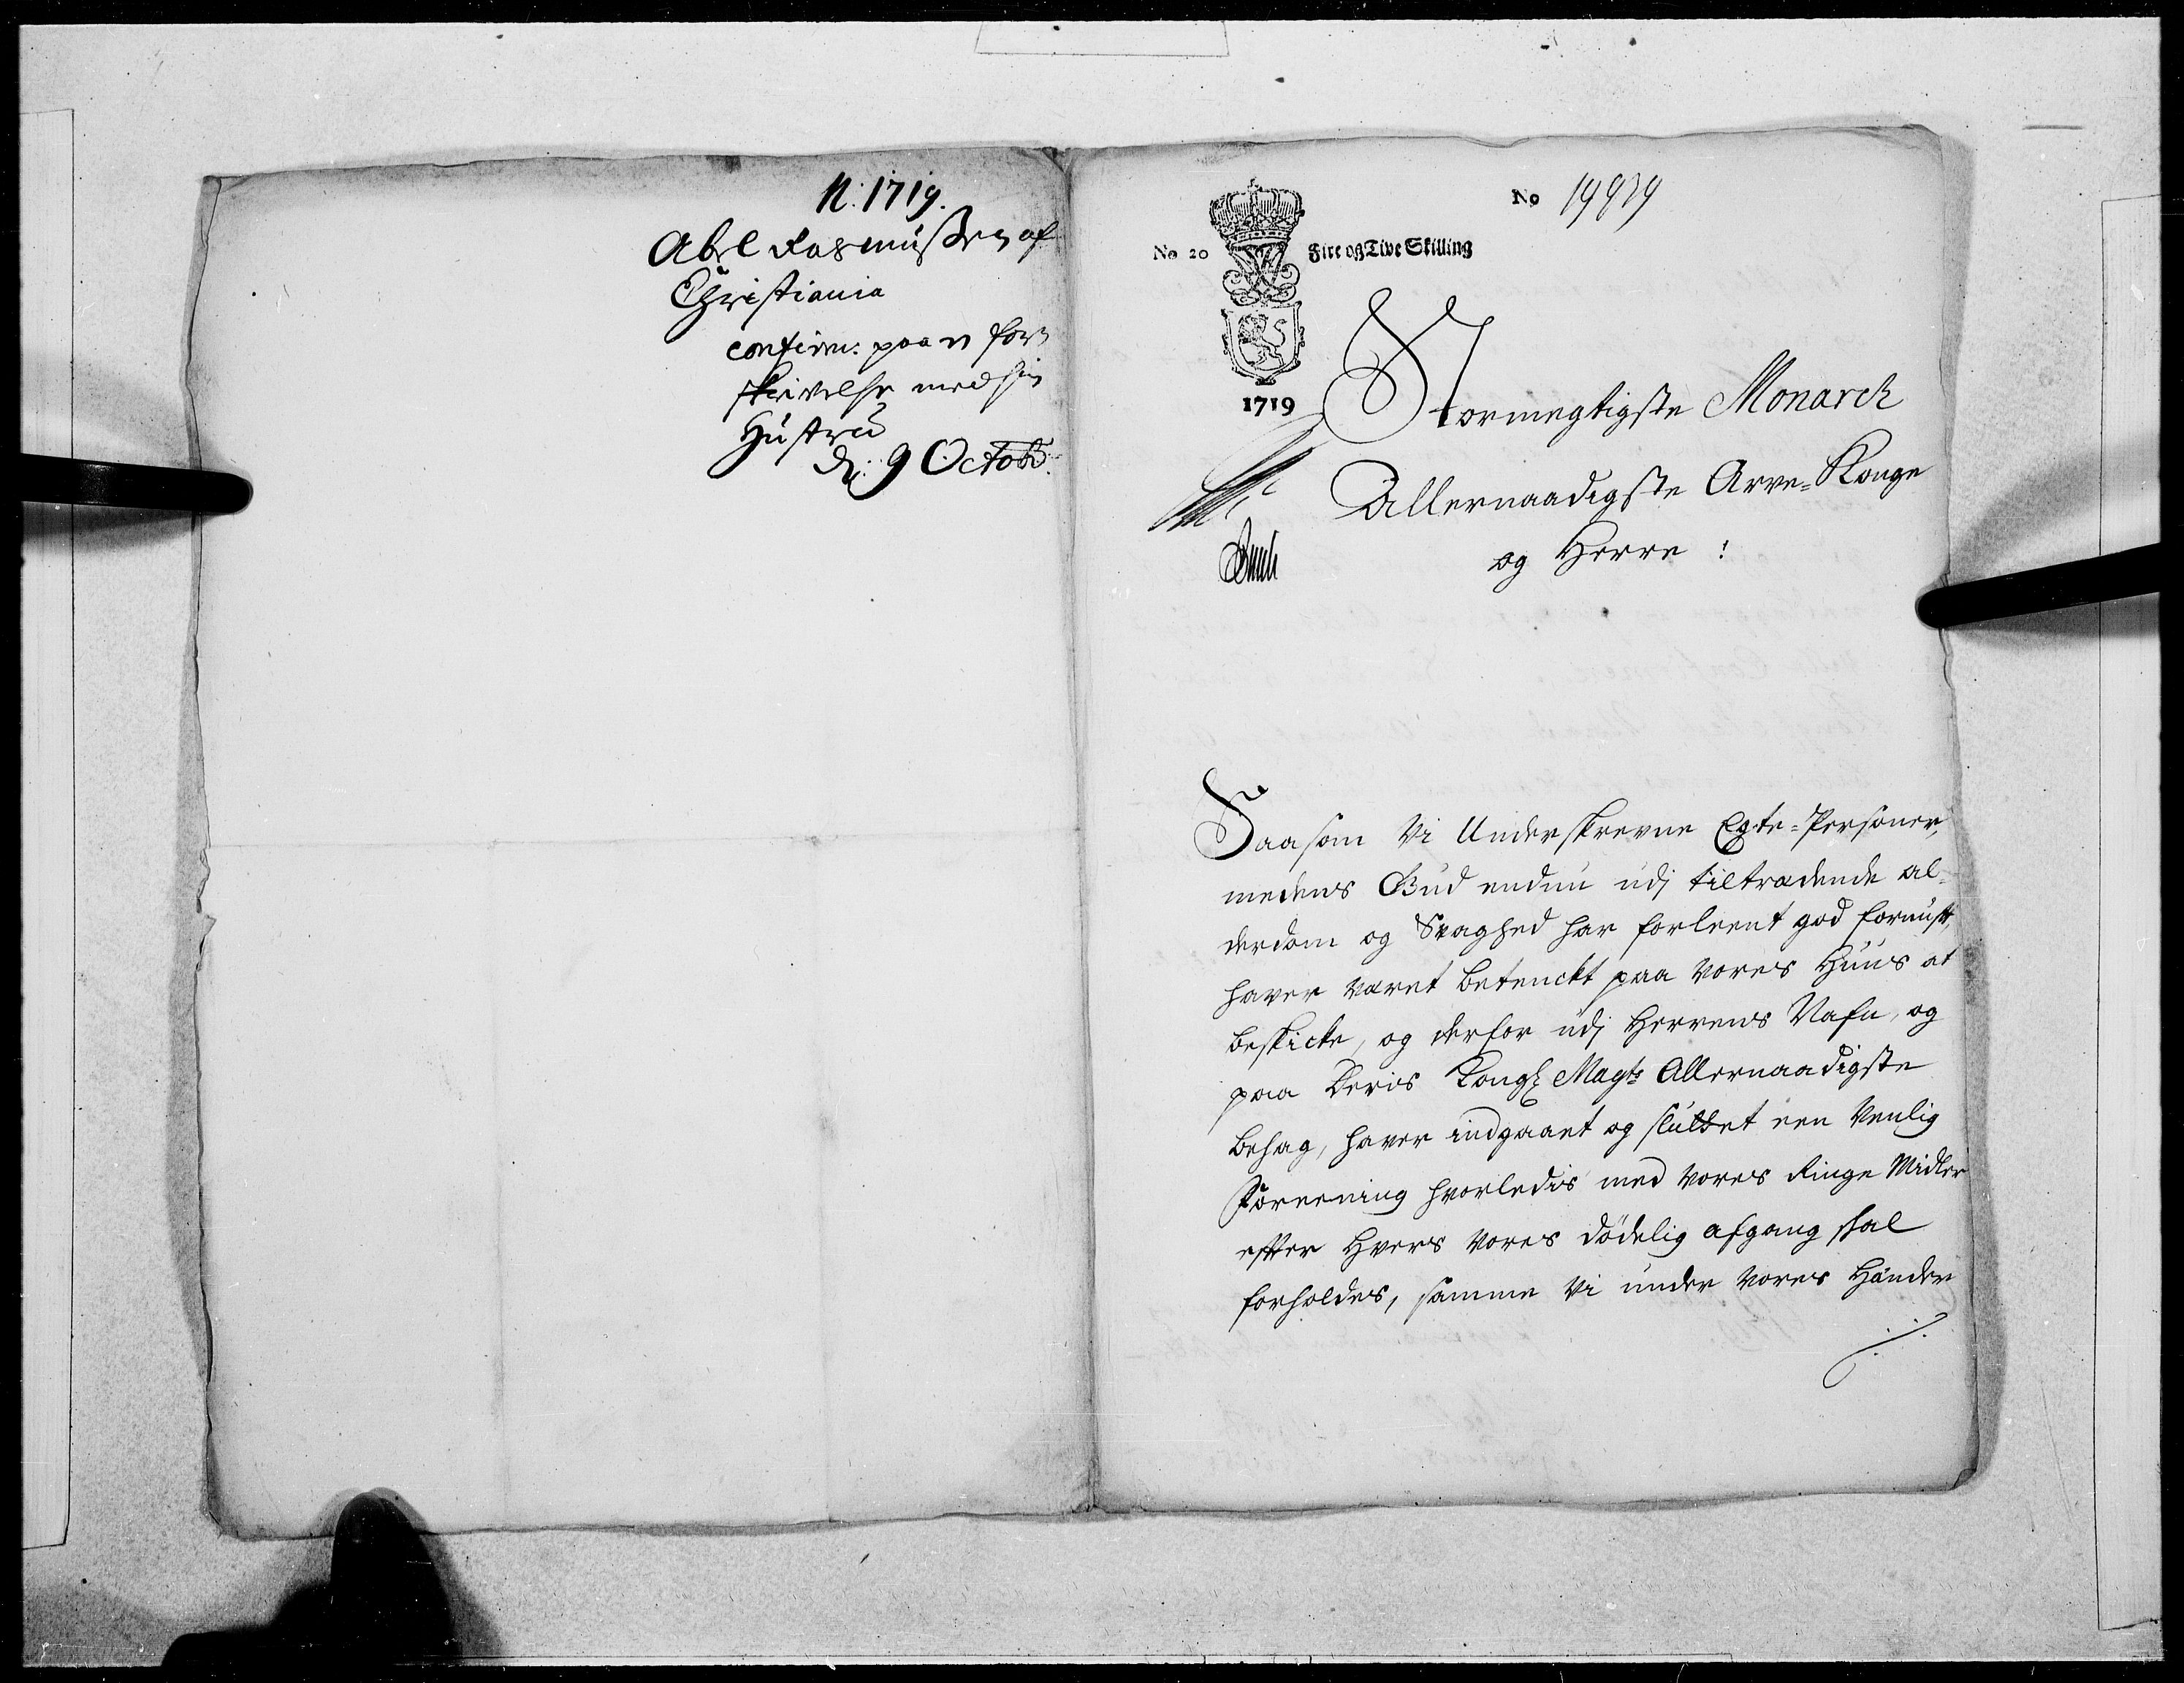 N: 1719.
Abel Rasmusßen af
Christiania
confirm: paa en for
skrivelse med sin
Hustrue
d: 9 Octobr:
No 19979
No 20 Fire og Tive Skilling
1719
Stormegtigste Monarch
Allernaadigste Arve-Konge
og Herre :
Saasom Vi Underskrevne Egte-Personer,
medens Gud endnu udj tiltrædende al-
derdom og Svaghed har forleent god fornuft,
haver været betenckt paa vores Huus at
beskicke, og derfor udj Herrens Nafn, og
paa Deris Kongl Mayts Allernaadigste
behag, haver indgaaet og sluttet een Venlig
Foreening hvorledis med vores Ringe Midler
efter Hvers vores dödelig afgang skal
forholdes, samme Vi under vores Hænder
./.